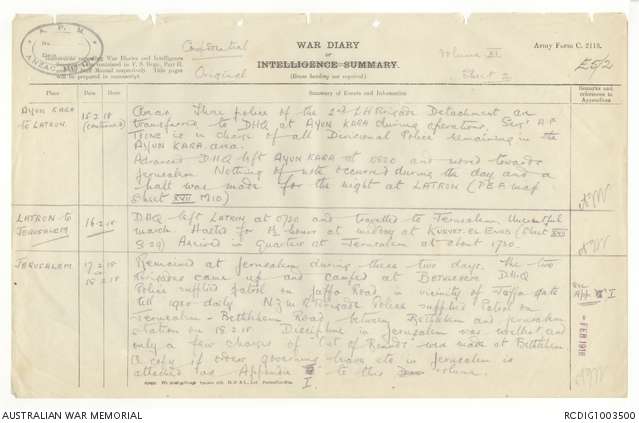 A. P. M.
No.
Date
ANZAC
Confidential
WAR DIARY
OR
INTELLIGENCE SUMMARY.
(Erase heading not required)
Army Form C. 2118.
Instructions regarding War Diaries and Intelligence
Summaries are contained in F. S. Regs., Part II.
and the Staff Manual respectively. Title pages
will be prepared in manuscript.
Original
Volume
Sheet 2
E5/2
Place
Date
Summary of Events and Information
Remarks and references to Appendices
AYUN KARA to LATRON.
15.2.18 (continued)
Three police of the 2nd LH Brigade Detachment are
transferred to DHQ at AYUN KARA during operations. Sergt
is in charge of all Divisional Police remaining in the
AYUN KARA area.
Advanced DHQ left AYUN KARA at 0830 and moved towards
Jerusalem. Nothing of note occurred during the day and a
halt was made for the night at LATRON (P.E.F. map
Sheet XVII M10)
LATRON to JERUSALEM
16.2.18
DHQ left LATRON at 0730 and travelled to Jerusalem. Uneventful
march. Halted for 1½ hours at midday at KURYET EL ENAB (Sheet XVII
Arrived in Quarters at Jerusalem at about 1730.
JERUSALEM
17.2.18
18.2.18
Remained at Jerusalem during these two days. The two
Brigades came up and camped at Bethlehem. DHQ
Police supplied patrol on Jaffa Road in vicinity of Jaffa gate
till 1900 daily. N.Z.M.R. Brigade Police supplied Patrol on
Jerusalem - Bethlehem Road between Bethlehem and Jerusalem
Station on 18.2.18. Discipline in Jerusalem was excellent and
only a few charges of out of Bounds were made at Bethlehem
A copy of orders governing leave etc in Jerusalem is
attached as Appendix I to this volume.
See App I
- FEB 1918
AUSTRALIAN WAR MEMORIAL
RCDIG1003500